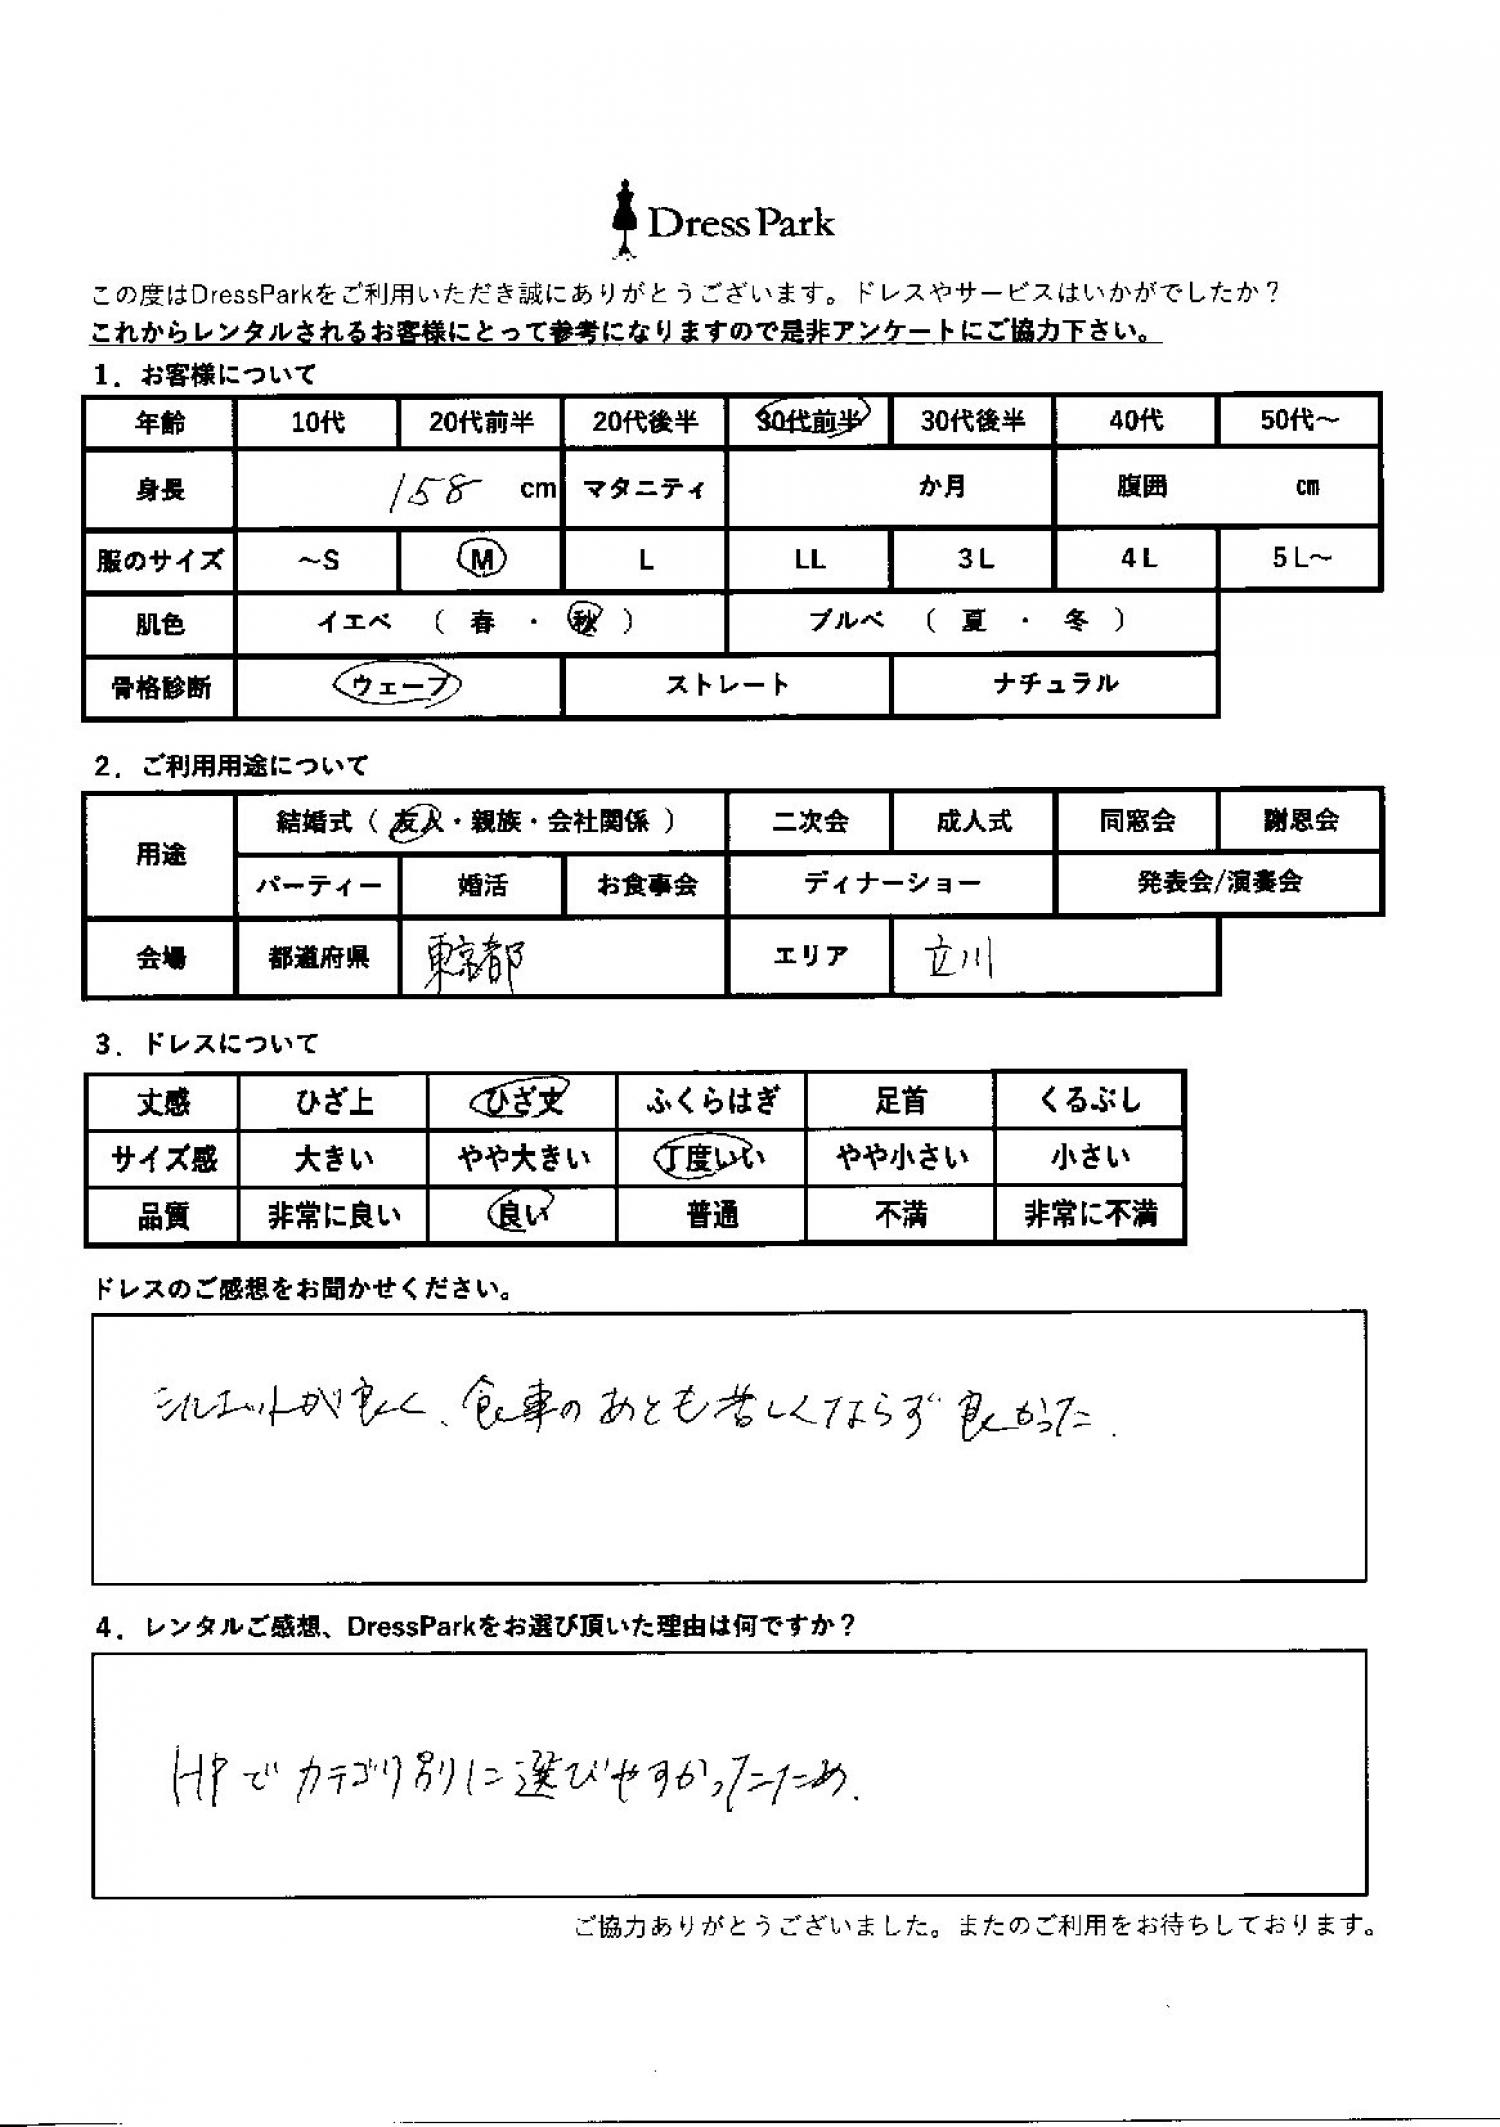 Dress Park
この度はDressParkをご利用いただき誠にありがとうございます。ドレスやサービスはいかがでしたか？
これからレンタルされるお客様にとって参考になりますので是非アンケートにご協力下さい。
1．お客様について
年齢 10代 20代前半 20代後半 30代前半 30代後半 40代 50代～
身長 158 cm マタニティ か月 腹囲 cm
服のサイズ ～S M L LL 3L 4L 5L～
肌色 イエベ （ 春 ・ 秋 ） ブルベ （ 夏 ・ 冬 ）
骨格診断 ウェーブ ストレート ナチュラル
2．ご利用用途について
用途 結婚式（ 友人・親族・会社関係 ） 二次会 成人式 同窓会 謝恩会
パーティー 婚活 お食事会 ディナーショー 発表会/演奏会
会場 都道府県 東京都 エリア 立川
3．ドレスについて
丈感 ひざ上 ひざ丈 ふくらはぎ 足首 くるぶし
サイズ感 大きい やや大きい 丁度いい やや小さい 小さい
品質 非常に良い 良い 普通 不満 非常に不満
ドレスのご感想をお聞かせください。
シルエットが良く、食事のあとも苦しくならず良かった.
4．レンタルご感想、DressParkをお選び頂いた理由は何ですか？
HPでカテゴリ別に選びやすかったため.
ご協力ありがとうございました。またのご利用をお待ちしております。